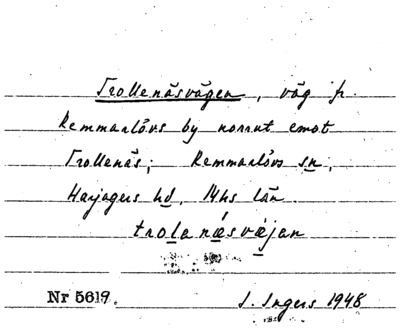 Trollenäsvägen, väg fr.
Remmarlövs by norrut emot
Trollenäs; Remmarlövs sn,
Harjagers hd, Mhs län.
trolanæ̀svæjan
Nr 5619. I. Ingers 1948